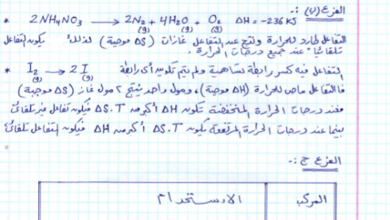 الفرع (ب) :-
* 2NH4NO3 → 2N2(g) + 4H2O(g) + O2(g) ΔH = -236 KJ
التفاعل طارد للحرارة ونتج عن التفاعل غازات (ΔS موجبة) لذلك يكون التفاعل
تلقائيا عند جميع درجات الحرارة.
* I2(g) → 2I(g) التفاعل فيه كسر رابطة تساهمية ولم يتم تكوين أي رابطة
فالتفاعل ماص للحرارة (ΔH موجبة)، ومول واحد ينتج 2 مول غاز (ΔS موجبة)
فعند درجات الحرارة المنخفضة تكون ΔH أكبر من ΔS.T فيكون التفاعل غير تلقائي
بينما عند درجات الحرارة المرتفعة تكون ΔS.T أكبر من ΔH فيكون التفاعل تلقائيا
الفرع ج :-
المركب الاستخدام